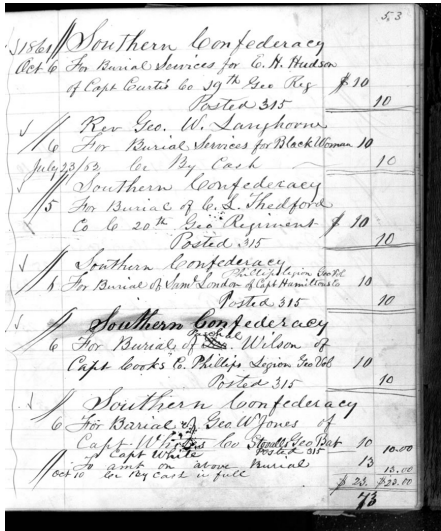 53
1861 Southern Confederacy
Oct 6 For Burial Services for E. H. Hudson
of Capt Curtis Co 19th Geo Reg $ 10
Posted 315 10
Rev Geo. W. Langhorne
6 For Burial Services for Black Woman 10
July 23/62 Cr By Cash 10
Southern Confederacy
5 For Burial of C. L. Thedford
Co C 20th Geo Regiment $ 10
Posted 315 10
Southern Confederacy
Phillips Legion Geo Vol
6 For Burial of Saml London of Capt Hamiltons Co 10
Posted 315 10
Southern Confederacy
6 For Burial of Wilson of
Capt Cooks C. Phillips Legion Geo Vol 10
Posted 315 10
Southern Confederacy
6 For Burial of Geo W Jones of
Capt Co Stovalls Geo Bat 10 10.00
Capt White Posted 315
To amt on above Burial 13 13.00
Oct 10 Cr By Cash in full $ 23. $23.00
73